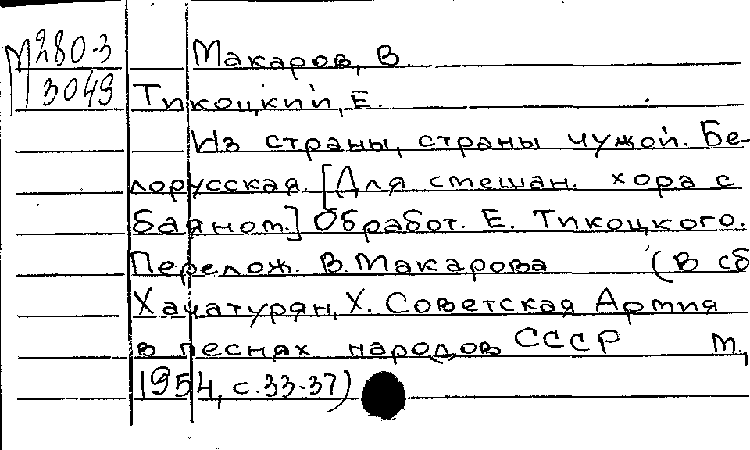 М280-3
3049
Макаров, В.
Тикоцкий, Е.
Из страны, страны чужой. Бе-
лорусская. [Для смешан. хора с
баяном.] Обработ. Е. Тикоцкого.
Перелож. В. Макарова (В сб
Хачатурян, Х. Советская Армия
в песнях народов СССР М.,
1954, с. 33-37)